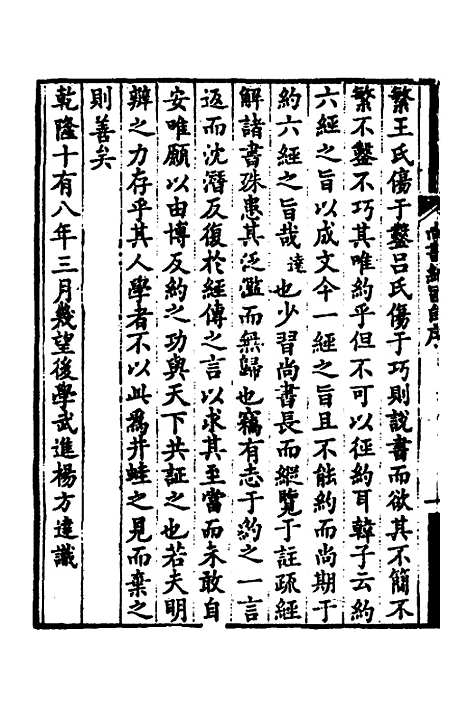 繁王氏傷于鑿呂氏傷于巧則說書而欲其不簡不
繁不鑿不巧其唯約乎但不可以徑約耳韓子云約
六經之旨以成文今一經之旨且不能約而尚期于
約六經之旨哉達也少習尚書長而縱覽于註疏經
解諸書殊患其泛濫而無歸也竊有志于約之一言
返而沈潛反復於經傳之言以求其至當而未敢自
安唯願以由博反約之功與天下共証之也若夫明
辨之力存乎其人學者不以此為井蛙之見而棄之
則善矣
乾隆十有八年三月幾望後學武進楊方達識